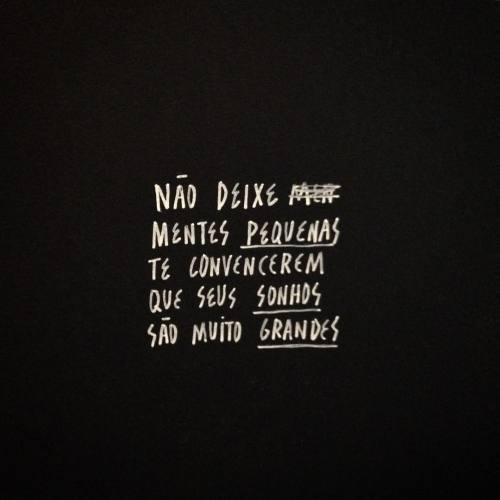 NÃO DEIXE MEN
MENTES PEQUENAS
TE CONVENCEREM
QUE SEUS SONHOS
SÃO MUITO GRANDES